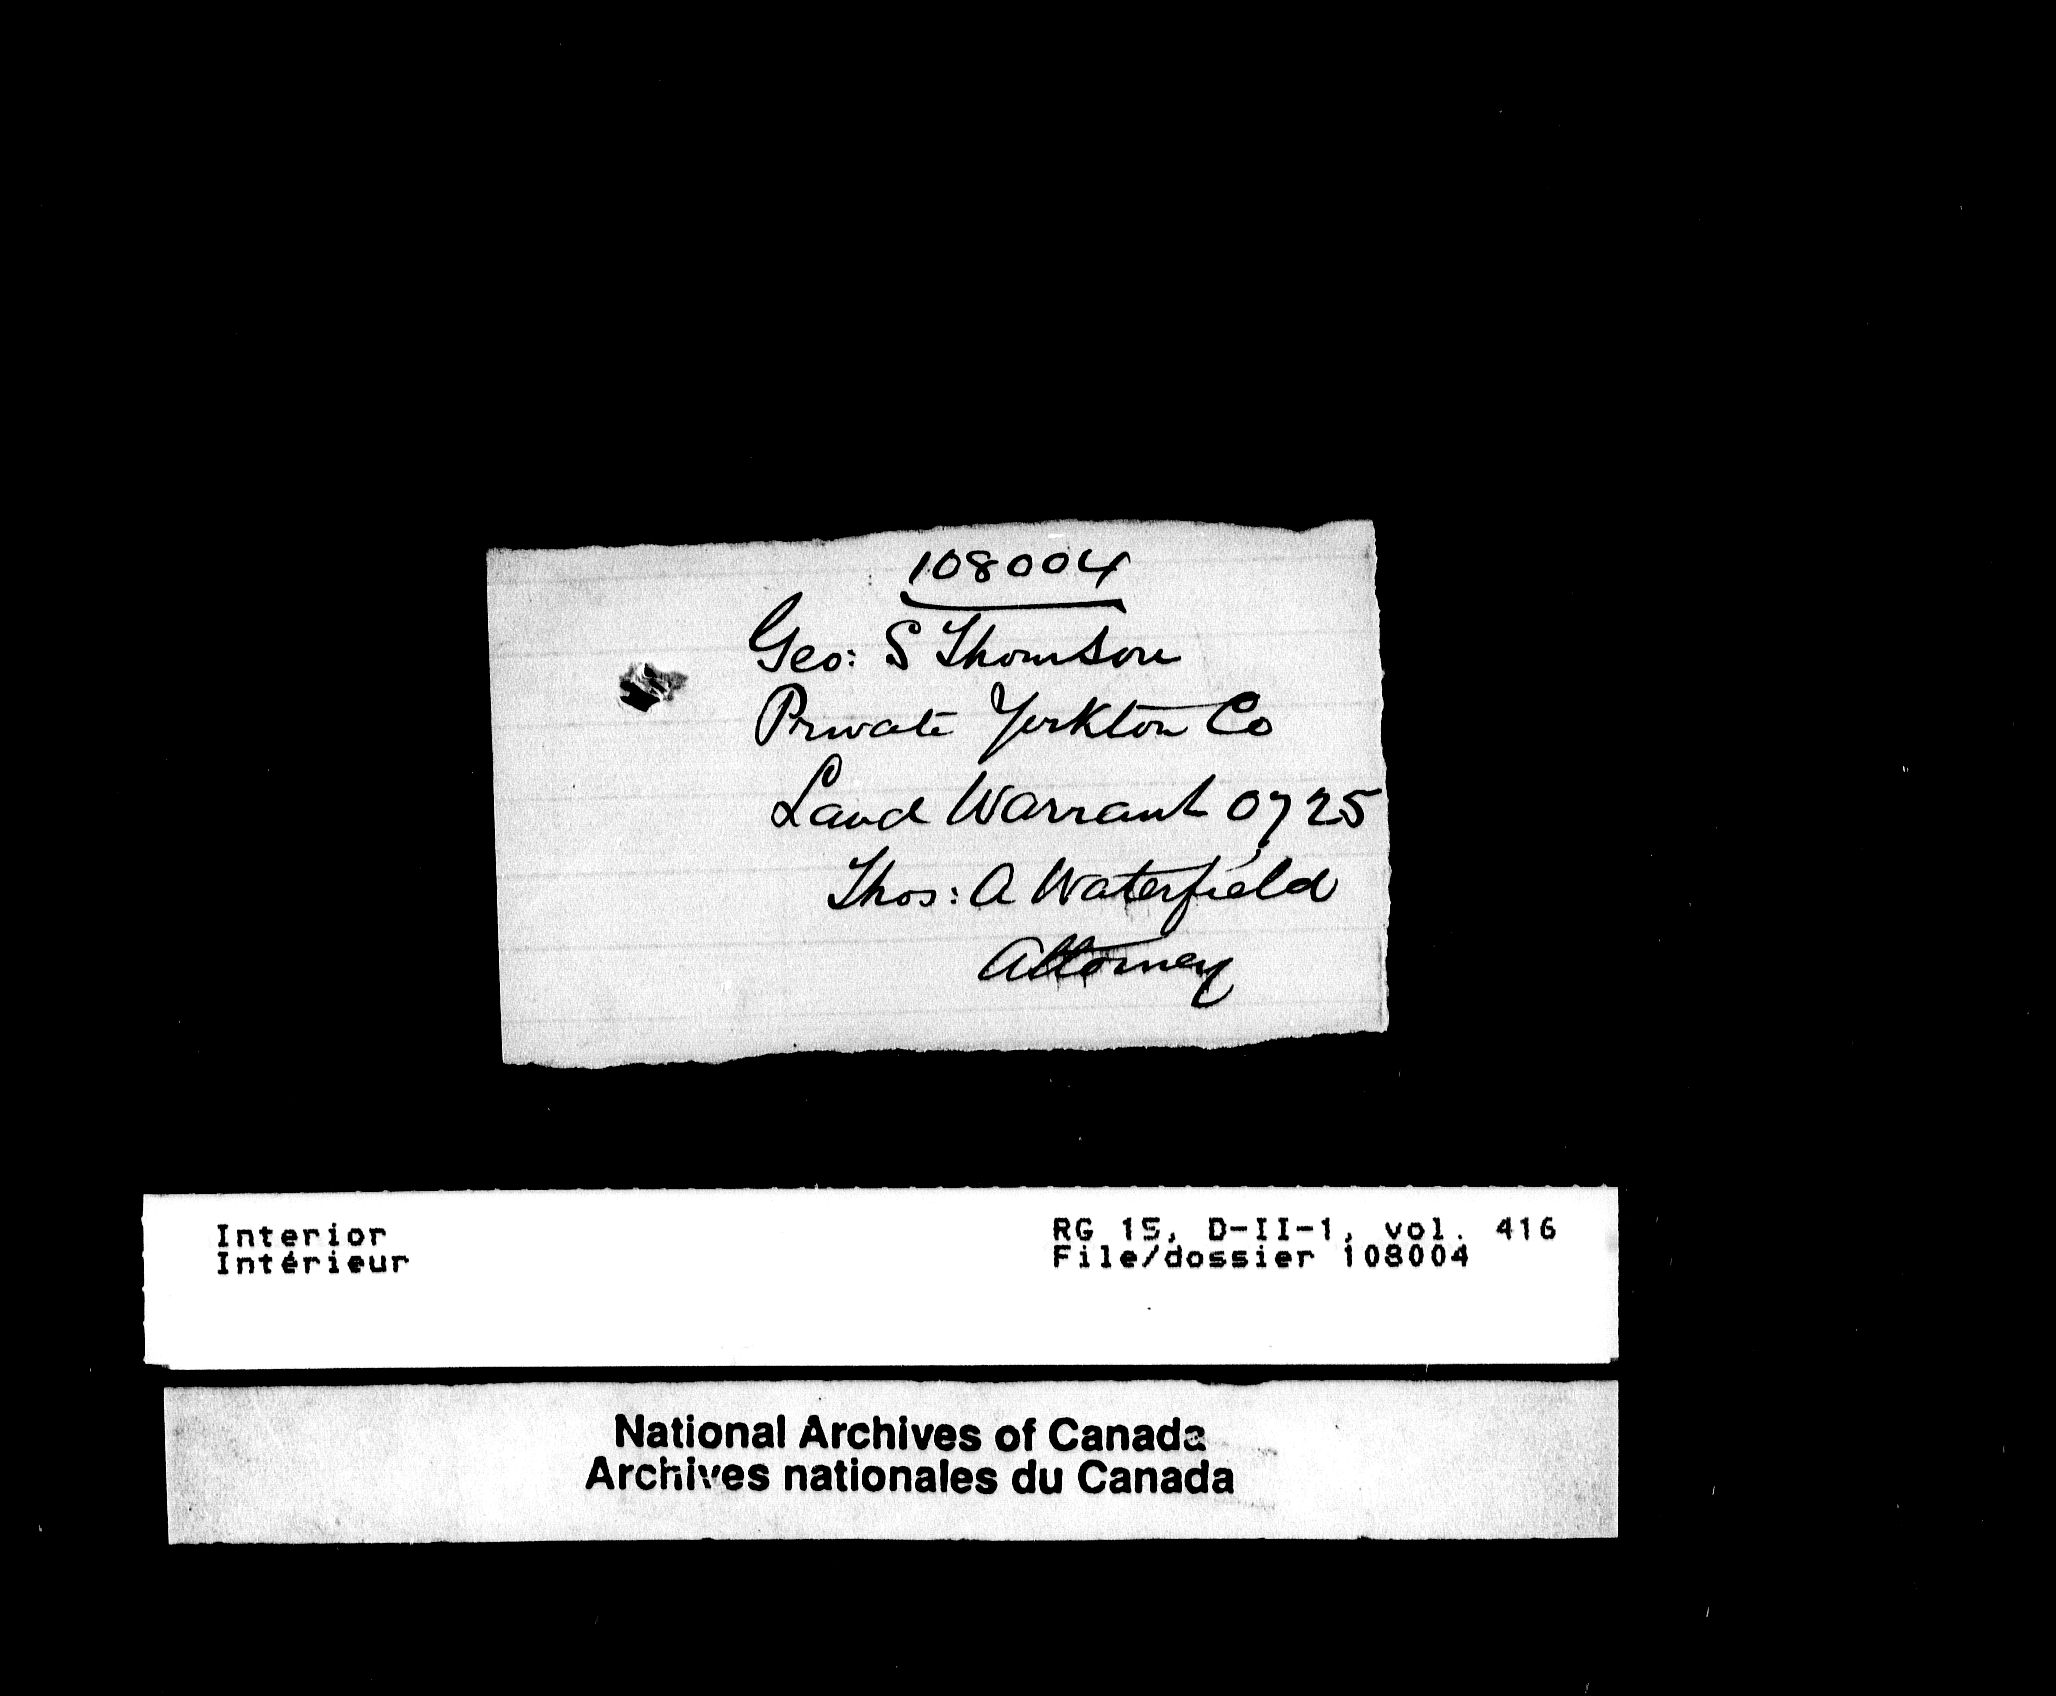 108004
Geo: S Thomson
Private Yorkton Co
Land Warrant 0725
Thos: A Waterfield
Attorney
Interior
Intérieur
RG 15, D-II-1, vol. 416
File/dossier 108004
National Archives of Canada
Archives nationales du Canada